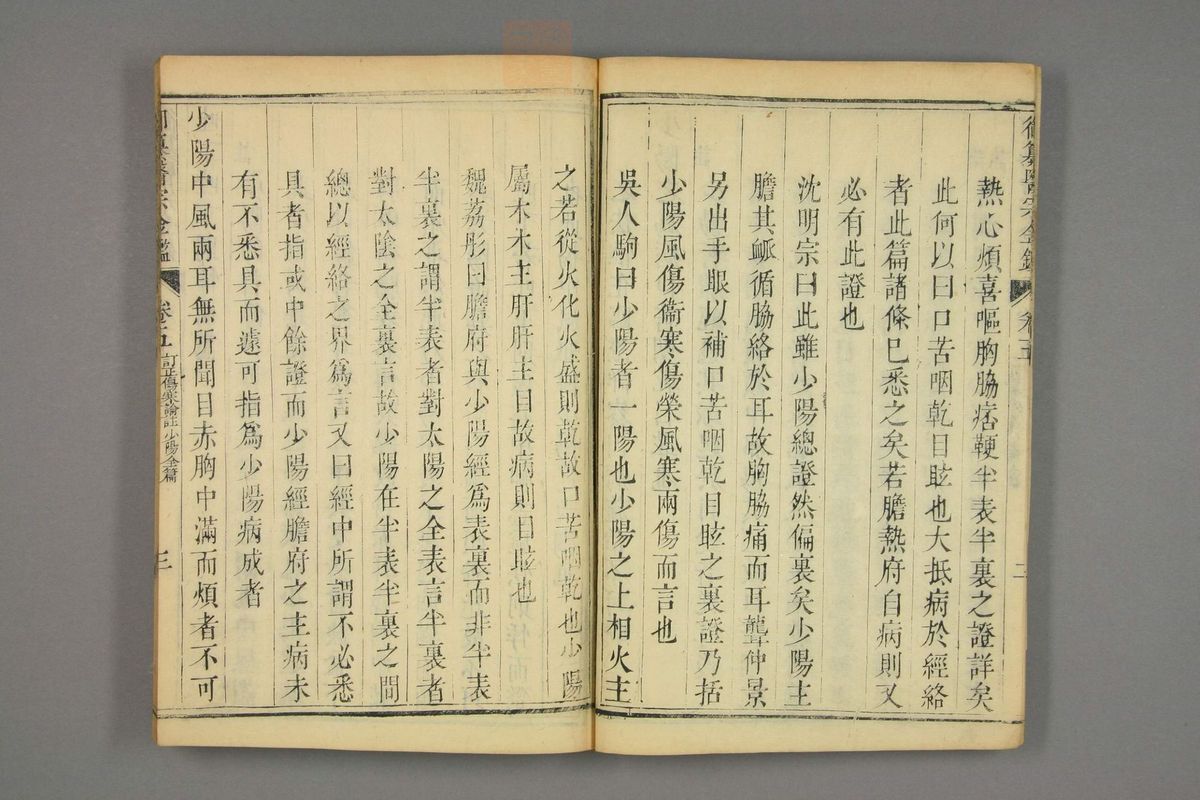 御纂醫宗金鑑 卷五 二
熱心煩喜嘔胸脇痞鞕半表半裏之證詳矣
此何以曰口苦咽乾目眩也大抵病於經絡
者此篇諸條已悉之矣若膽熱府自病則又
必有此證也
沈明宗曰此雖少陽總證然偏裏矣少陽主
膽其衇循脇絡於耳故胸脇痛而耳聾仲景
另出手眼以補口苦咽乾目眩之裏證乃括
少陽風傷衞寒傷榮風寒兩傷而言也
吳人駒曰少陽者一陽也少陽之上相火主
之若從火化火盛則乾故口苦咽乾也少陽
屬木木主肝肝主目故病則目眩也
魏荔彤曰膽府與少陽經爲表裏而非半表
半裏之謂半表者對太陽之全表言半裏者
對太陰之全裏言故少陽在半表半裏之間
總以經絡之界爲言又曰經中所謂不必悉
具者指或中餘證而少陽經膽府之主病未
有不悉具而遽可指爲少陽病成者
少陽中風兩耳無所聞目赤胸中滿而煩者不可
卷五 訂正傷寒論註少陽全篇 三